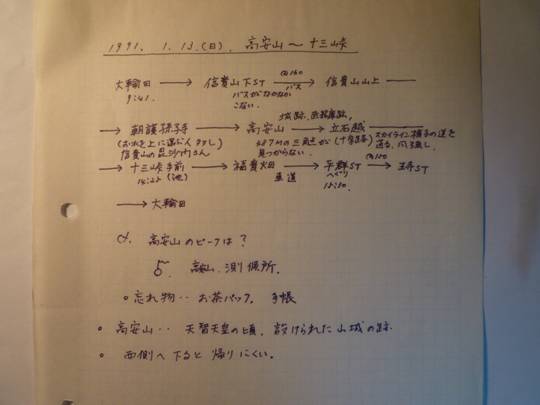 1991. 1. 13.(日). 高安山〜十三峠
大輪田 → 信貴山下ST → 信貴山山上 →
9:41. バスがなかなか @160 バス
こない。
城跡.
→ 朝護孫子寺 → 高安山 → 立石越 スカイライン横の道を
(お水を上に運ぶ人 487Mの三角点が 通る、風強し
信貴山の毘沙門さん 見つからない。
→ 十三峠手前 → 福貴畑 → 平群ST → 王寺ST
車道 へぐり @160
→ 大輪田
Q. 高安山のピークは?
高安山. 測候所.
○忘れ物‥ お茶パック. 手帳
○ 高安山‥ 天智天皇の頃、設けられた山城の跡
○ 西側へ下ると帰りにくい。